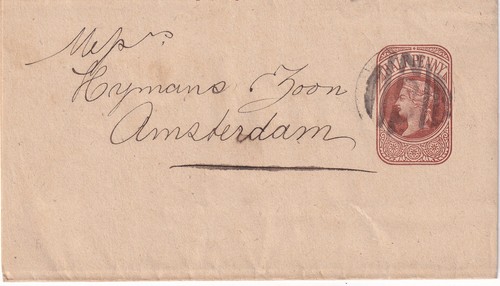 Messrs
Hymans Zoon
Amsterdam
HALFPENNY